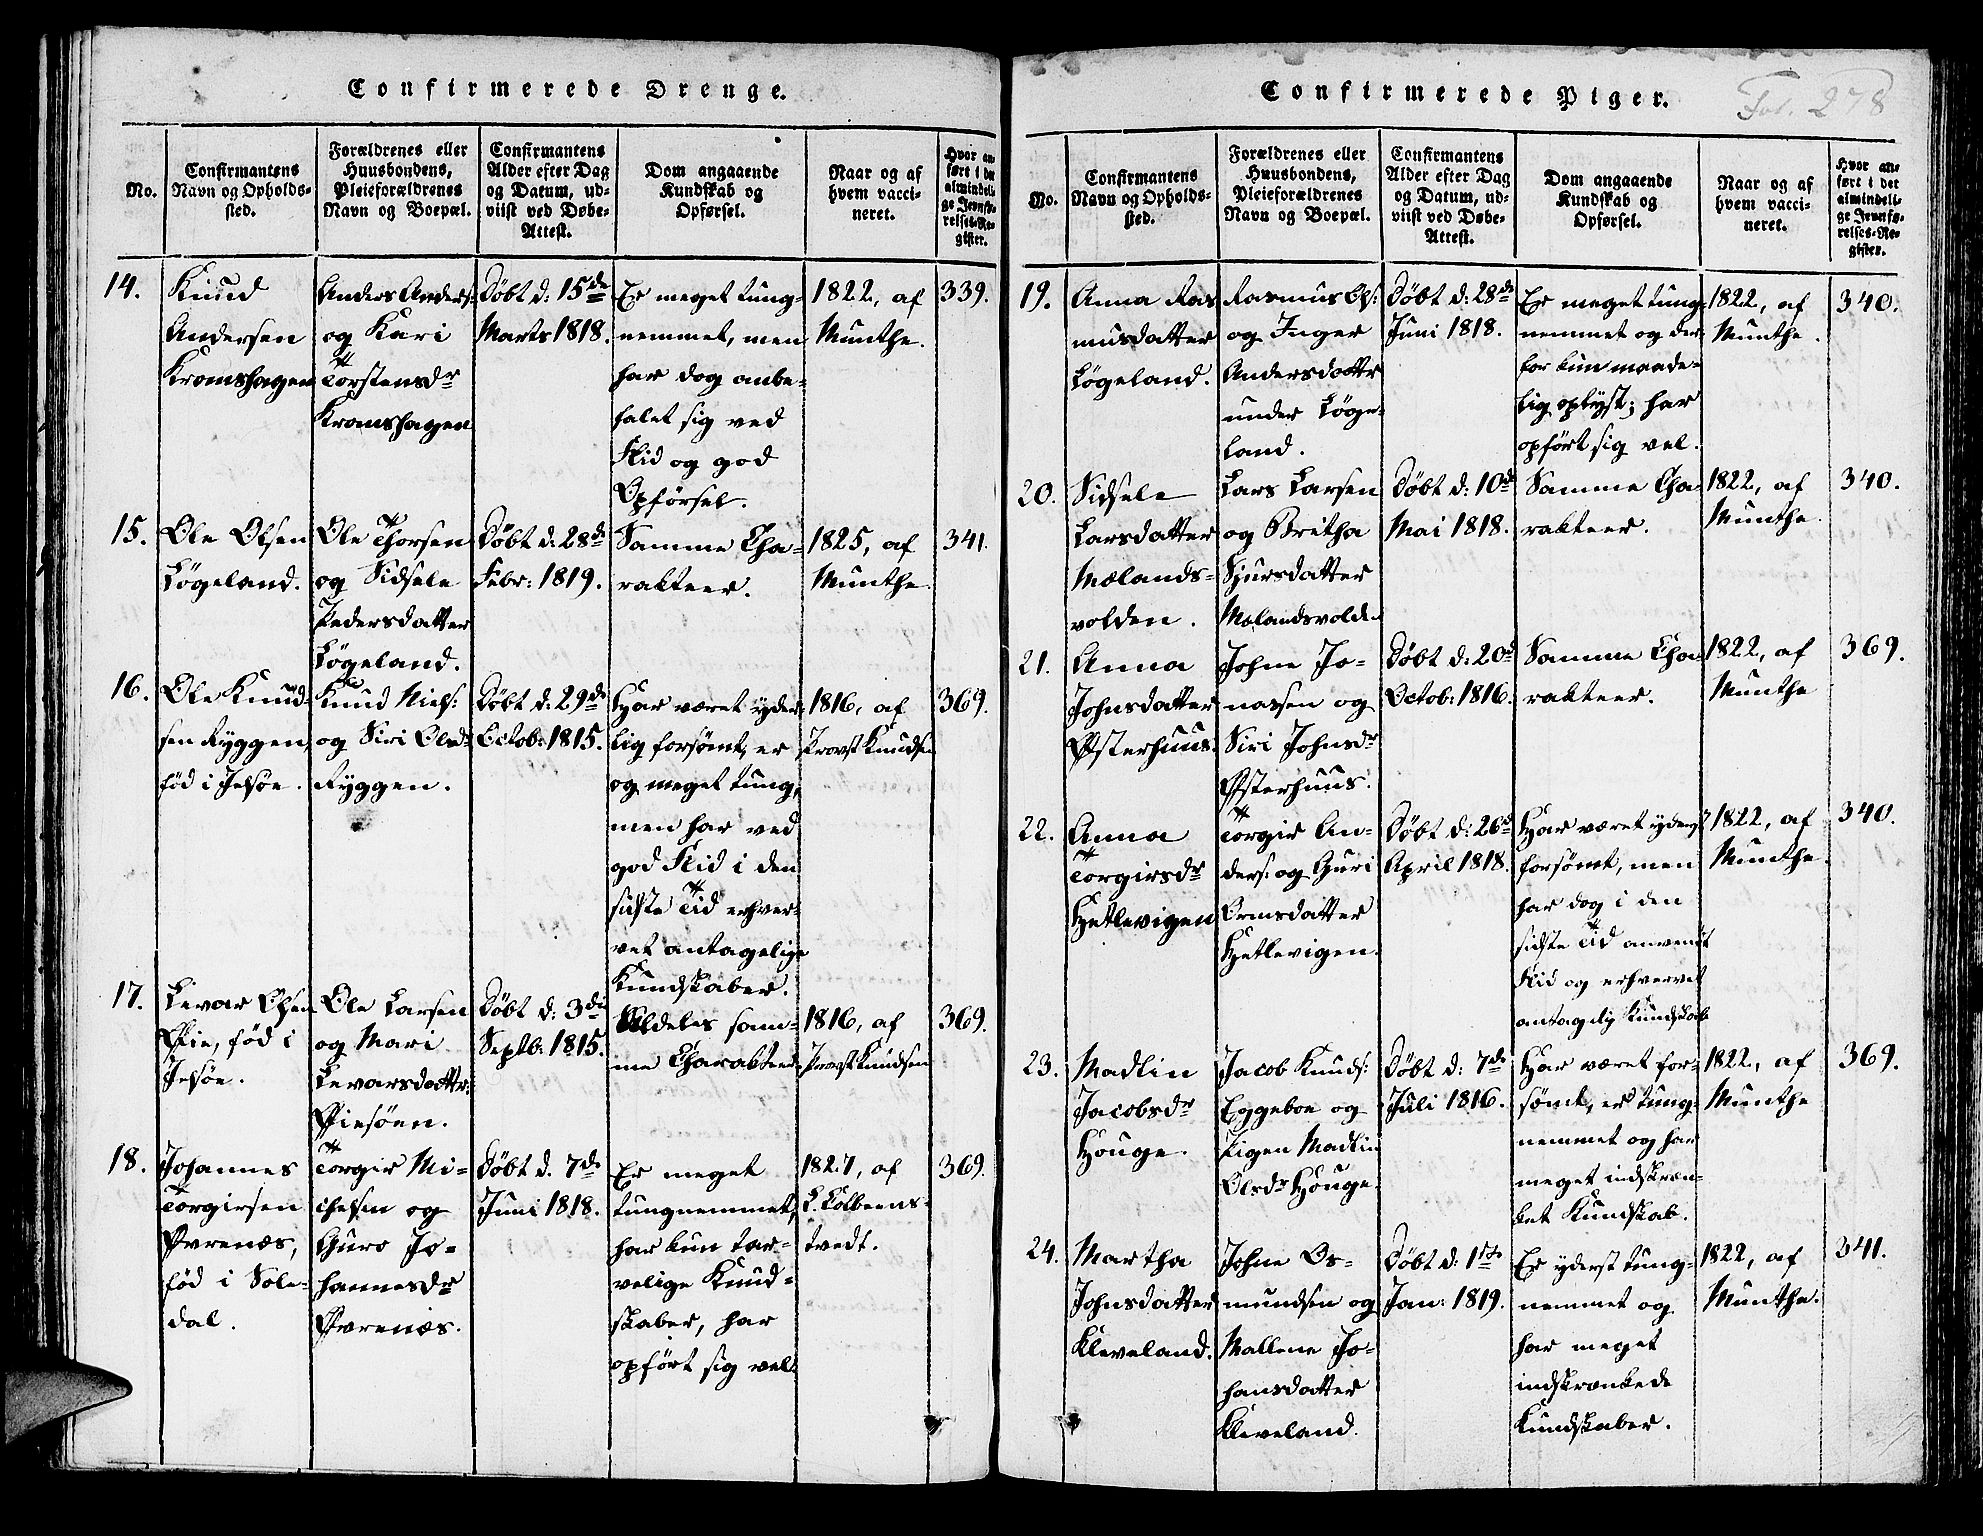 Confirmerede Drenge.
No.
Confirmantens
Navn og Opholds-
sted.
Forældrenes eller
Huusbondens,
Pleieforældrenes
Navn og Boepæl.
Confirmantens
Alder efter Dag
og Datum, ud-
viist ved Døbe-
Attest.
Dom angaaende
Kundskab og
Opførsel.
Naar og af
hvem vacci-
neret.
Hvor an-
ført i det
almindeli-
ge Jevnfø-
relses-Re-
gister.
14.
Knud
Andersen
Kromshagen
Anders Anders:
og Kari
Torstensdr
Kromshagen
Döbt d: 15de
Marts 1818.
Er meget tung-
nemmet, men
har dog anbe-
falet sig ved
Flid og god
Opförsel.
1822, af
Munthe.
339.
15.
Ole Olsen
Løgeland.
Ole Thorsen
og Sidsele
Pedersdatter
Løgeland.
Döbt d: 28de
Febr: 1819.
Samme Cha-
rakteer.
1825, af
Munthe.
341.
16.
Ole Knud-
sen Ryggen,
fød i Jelsøe.
Knud Niels:
og Siri Olsdr
Ryggen.
Döbt d: 29de
Octob: 1815.
Har været yder-
lig forsömt, er
og meget tung,
men har ved
god Flid i den
sidste Tid erhver-
vet antagelige
Kundskaber.
1816, af
Provst Knudsen
369.
17.
Levar Olsen
Øie, fød i
Jelsøe.
Ole Larsen
og Mari
Levarsdatter
Øiesöen.
Döbt d: 3de
Septb: 1815.
Aldeles sam-
me Charakteer.
1816, af
Provst Knudsen
369.
18.
Johannes
Torgirsen
Øvrenæs,
fød i Sole-
dal.
Torgir Mi-
chelsen og
Guro Jo-
hannesdr
Øvrenæs.
Döbt d. 7de
Juni 1818.
Er meget
tungnemmet,
har kun tar-
velige Kund-
skaber, har
opfört sig vel.
1827, af
L. Kolbeens-
tvedt.
369.
Confirmerede Piger.
Fol. 278
No.
Confirmantens
Navn og Opholds-
sted.
Forældrenes eller
Huusbondens,
Pleieforældrenes
Navn og Boepæl.
Confirmantens
Alder efter Dag
og Datum, ud-
viist ved Døbe-
Attest.
Dom angaaende
Kundskab og
Opførsel.
Naar og af
hvem vacci-
neret.
Hvor an-
ført i det
almindeli-
ge Jevnfø-
relses-Re-
gister.
19.
Anna Ras
musdatter
Løgeland.
Rasmus Ols:
og Inger
Andersdattr
under Løge-
land.
Döbt d: 28de
Juni 1818.
Er meget tung-
nemmet og der-
for kun maade-
lig oplyst; har
opfört sig vel.
1822, af
Munthe.
340.
20.
Sidsele
Larsdatter
Mælands-
volden.
Lars Larsen
og Britha
Sjursdatter
Mælandsvolden
Döbt d: 10de
Mai 1818.
Samme Cha-
rakteer.
1822, af
Munthe.
340.
21.
Anna
Johnsdatter
Østerhuus.
Johne Jo-
nassen og
Siri Johnsdr
Østerhuus.
Döbt d: 20de
Octob: 1816.
Samme Cha-
rakteer.
1822, af
Munthe
369.
22.
Anna
Torgirsdr
Hetlevigen
Torgir An-
ders: og Guri
Ormsdatter
Hetlevigen.
Döbt d: 26de
April 1818.
Har været yderst
forsömt, men
har dog i den
sidste Tid anvendt
Flid og erhvervet
antagelig Kundskab
1822, af
Munthe.
340.
23.
Madlin
Jacobsdr
Houge.
Jacob Knuds:
Eggeboe og
Pigen Madlin
Olsdr Houge.
Döbt d: 7de
Juli 1816.
Har været for-
sömt, er tung-
nemmet og har
meget indskræn-
ket Kundskab.
1822, af
Munthe
369.
24.
Martha
Johnsdatter
Kleveland.
Johne Os-
mundsen og
Mallene Jo-
hansdatter
Kleveland.
Döbt d: 1ste
Jan: 1819.
Er yderst tung-
nemmet og
har meget
indskrænkede
Kundskaber.
1822, af
Munthe.
341.